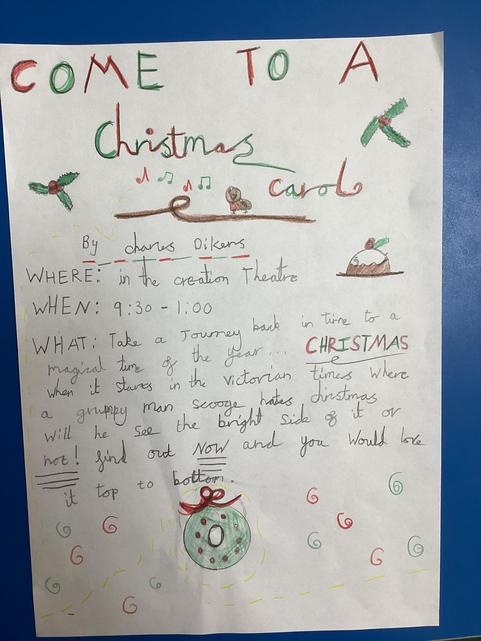 COME TO A
Christmas
carol
By charles Dikens
WHERE: in the creation Theatre
WHEN: 9:30 - 1:00
WHAT: Take a Journey back in time to a
magical time of the year... CHRISTMAS
when it stares in the victorian times where
a grumpy man scooge hates christmas
will he see the bright side of it or
not! find out NOW and you would love
it top to bottom.